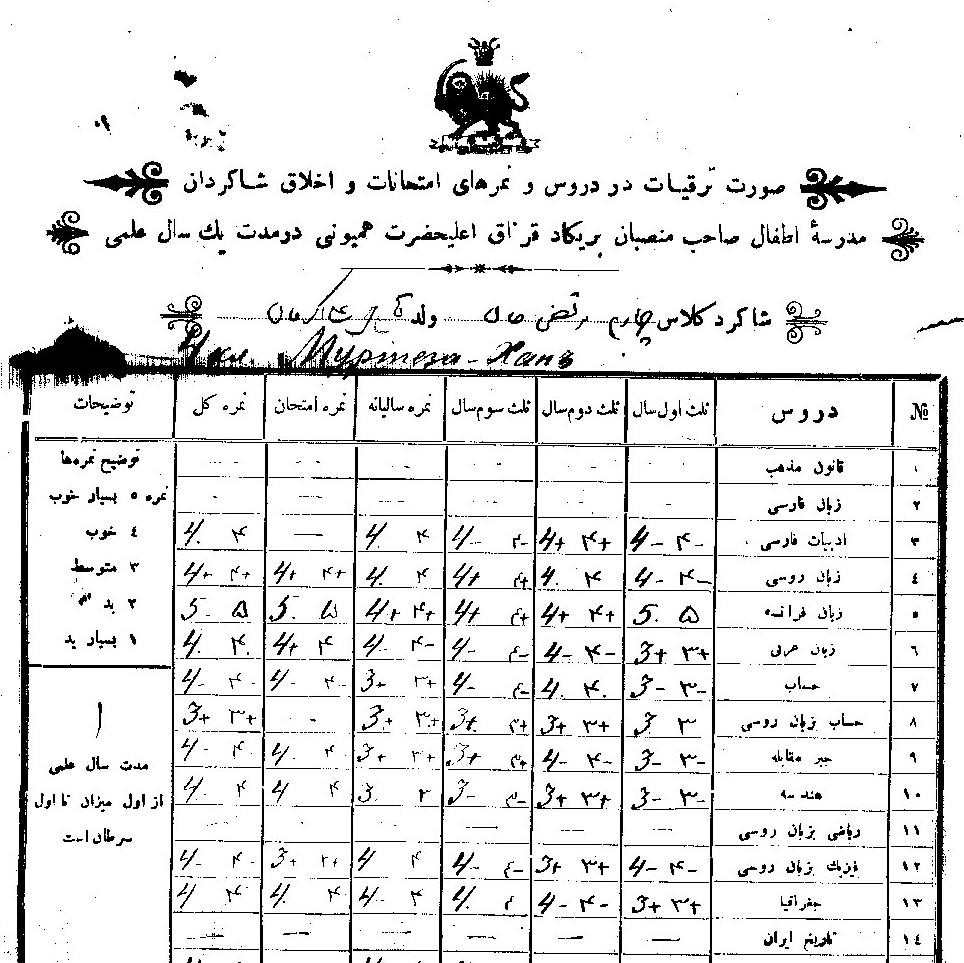 صورت ترقیات در دروس و نمرهای امتحانات و اخلاق شاکردان
مدرسهٔ اطفال صاحب منصبان بریکاد قزاق اعلیحضرت همیونی در مدت یك سال علمی
شاکرد کلاس چهارم مرتضی خان ولد
4 кл. Муртеза-Ханъ
№ دروس ثلث اول سال ثلث دوم سال ثلث سوم سال نمره سالیانه نمره امتحان نمره کل توضیحات
١ قانون مذهب - - - - - - - - - - - - - -
٢ زبان فارسی - - - - - - -
٣ ادبیات فارسی 4- ۴- 4+ ۴+ 4- ۴- 4. ۴ — 4. ۴
٤ زبان روسی 4- ۴- 4. ۴ 4+ ۴+ 4. ۴ 4+ ۴+ 4+ ۴+
٥ زبان فرانسه 5. ۵ 4+ ۴+ 4+ ۴+ 4+ ۴+ 5. ۵ 5- ۵
٦ زبان عربی 3+ ۳+ 4- ۴- 4- ۴- 4- ۴- 4+ ۴ 4. ۴.
٧ حساب 3- ۳- 4. ۴. 4- ۴- 3+ ۳+ 4- ۴- 4- ۴-
٨ حساب بزبان روسی 3 ۳ 3+ ۳+ 3+ ۳+ 3+ ۳+ - 3+ ۳+
٩ جبر مقابله 3- ۳- 4- ۴- 3+ ۳+ 3+ ۳+ 4 ۴ 4- ۴-
١٠ هندسه 3- ۳- 3+ ۳+ 3- ۳- 3. ۳ 4 ۴ 4. ۴
١١ ریاضی بزبان روسی — — — — — —
١٢ فیزیك بزبان روسی 4- ۴- 3+ ۳+ 4- ۴- 4 ۴ 3+ ۳+ 4- ۴-
١٣ جغرافیا 3+ ۳+ 4- ۴- 4. ۴ 4- ۴ 4. ۴ 4 ۴
١٤ تاریخ ایران — — — — — —
توضیح نمره‌ها
نمره ٥ بسیار خوب
٤ خوب
٣ متوسط
٢ بد
١ بسیار بد
مدت سال علمی
از اول میزان تا اول
سرطان است